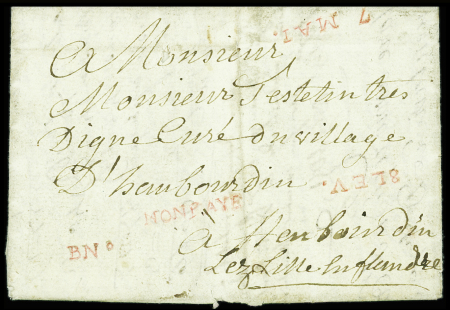 7 MAI.
A Monsieur
Monsieur Testelin tres
Digne Curé du village
D'haubourdin
8 LEV.
NONPAYE
BNo
a Henbourdin
Lez Lille en flandre